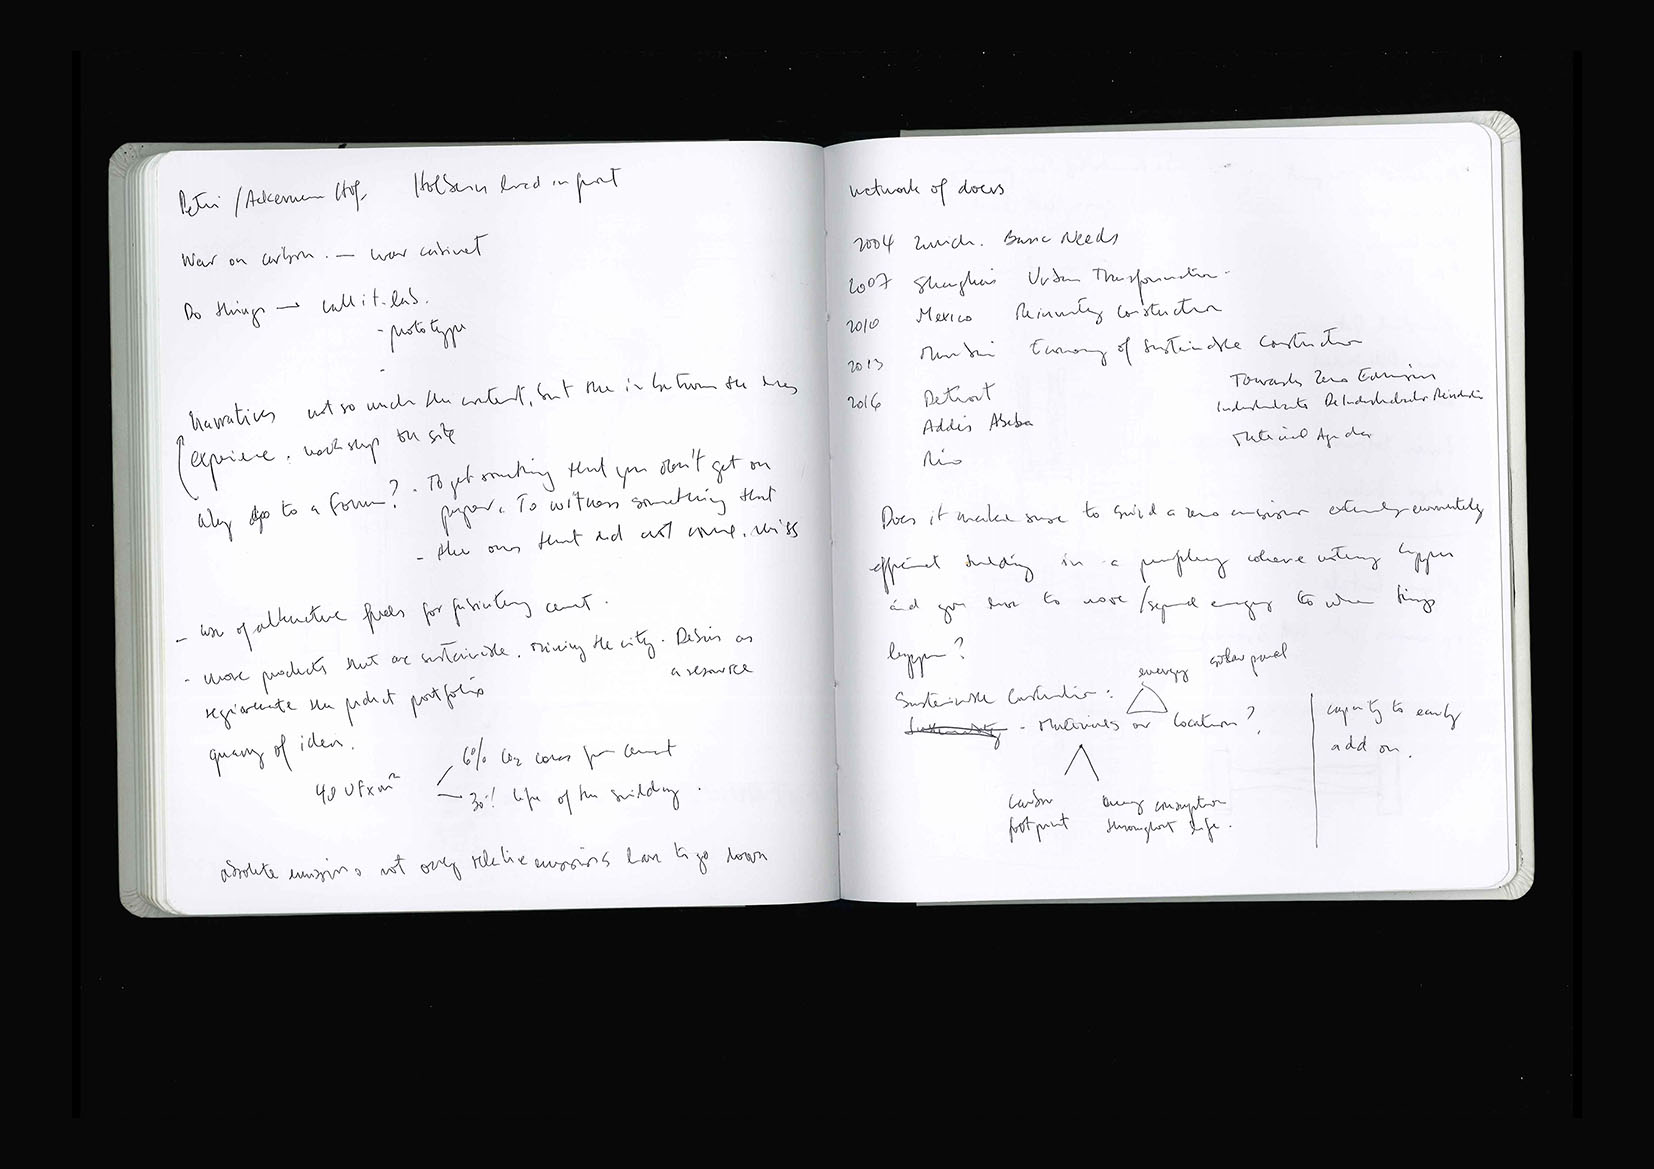 Petri / Ackerman Hof, Holbein lived in front
War on carbon. — war cabinet
Do things → call it lab.
- prototype
-
Narratives not so much the content, but the in between the lines
experience. workshop on site
Why go to a Forum? - To get something that you don't get on
paper. To witness something that
- the ones that did not come, miss
- use of alternative fuels for cement.
- more products that are sustainable. mining the city. Debris as
a resource
the product portfolio
quarry of ideas.
6% CO2 comes from cement
30% life of the building.
absolute emissions not only relative emissions have to go down
network of doers
2004 Zurich. Basic Needs
2007 Shanghai Urban Transformation
2010 Mexico Reinventing Construction
2013 Mumbai Economy of Sustainable Construction
2016 Detroit
Addis Abeba
Rio
Towards Zero Emission
Material Agendas
Does it make sense to build a zero emission extremely
efficient building in a periphery where nothing happens
and you have to move / spend energy to where things
happen?
energy solar panel
Sustainable Construction:
- Materials or location?
carbon
footprint
energy consumption
throughout life.
capacity to easily
add on.